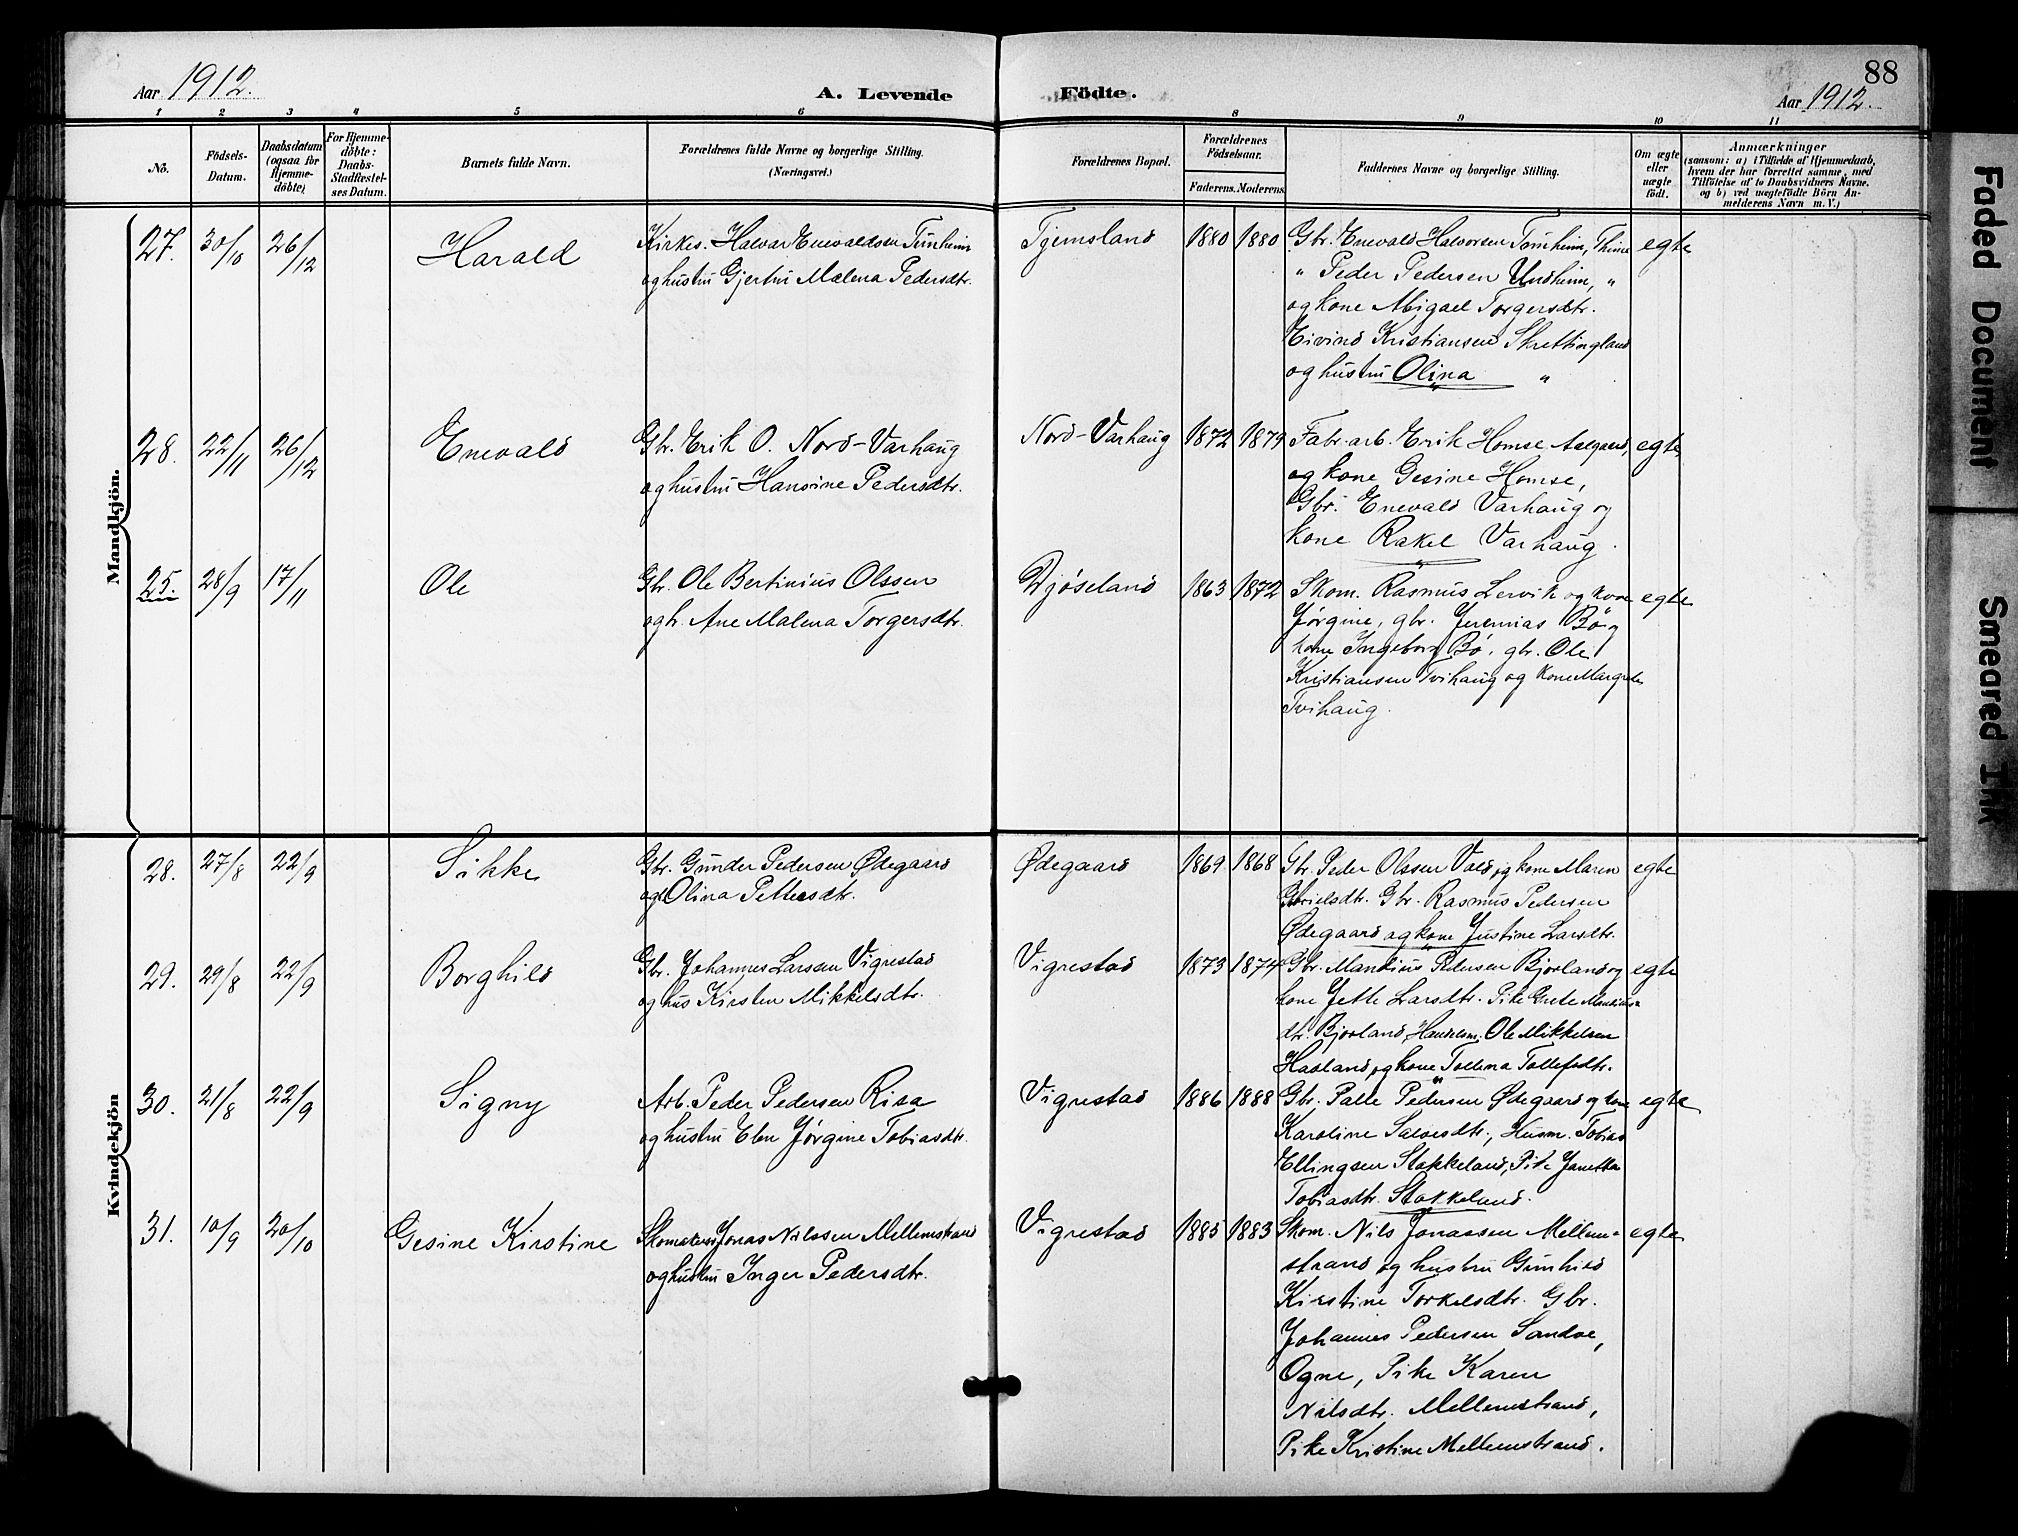 88
Aar 1912.
A. Levende Födte.
Aar 1912.
1 2 3 4 5 6 8 9 10 11
No.
Födsels-Datum.
Daabsdatum (ogsaa for Hjemmedöbte)
For Hjemmedöbte: Daabs-Stadfæstelses Datum.
Barnets fulde Navn.
Forældrenes fulde Navne og borgerlige Stilling. (Næringsvei.)
Forældrenes Bopæl.
Forældrenes Födselsaar.
Faderens. Moderens.
Faddernes Navne og borgerlige Stilling.
Om ægte eller uægte födt.
Anmærkninger
(saasom: a) i Tilfælde af Hjemmedaab, hvem der har forrettet samme, med Tilföielse af to Daabsvidners Navne. og b) ved uægtefödte Börn Anmelderens Navn m. V.)
Mandkjön.
27. 30/10 26/12 Harald
Kirkes. Halvar Enevaldsen Tunheim
og hustru Gjertru Malena Pedersdtr.
Tjemsland 1880 1880
Gbr. Enevald Halvorsen Tunheim, Thime egte
" Peder Pedersen Undheim, "
og kone Abigael Torgersdtr.
Eivind Kristiansen Skrettingland
og hustru Olina "
28. 22/11 26/12 Enevald
Gbr. Erik O. Nord-Varhaug
og hustru Hansine Pedersdtr.
Nord-Varhaug 1872 1879
Fabr. arb. Erik Homse Aalgaard, egte
og kone Gesine Homse,
Gbr. Enevald Varhaug og
kone Rakel Varhaug.
25. 28/9 17/11 Ole
Gbr. Ole Bertinius Olssen
og h. Ane Malena Torgersdtr.
Djøseland 1863 1872
Skom. Rasmus Lervik og kone egte
Jørgine, gbr. Jeremias Bø og
kone Ingeborg Bø, gbr. Ole
Kristiansen Tvihaug og kone Margrete
Tvihaug.
Kvindekjön
28. 27/8 22/9 Sikke
Gbr. Gunder Pedersen Ødegaard
og Olina Pettersdtr.
Ødegaard 1869 1868
Gbr. Peder Olssen Vald og kone Maren egte
Gbr. Rasmus Pedersen
Ødegaard og kone Justine Larsdtr.
29. 29/8 22/9 Borghild
Gbr. Johannes Larssen Vigrestad
og hus Kirsten Mikkelsdtr.
Vigrestad 1873 1874
Gbr. Mandius Pedersen Bjorland og egte
kone Jette Larsdtr. Pike Grete Mandius-
dtr. Bjorland, Handelsm. Ole Mikkelsen
Haaland og kone Tollena Tollefsdtr.
30. 21/8 22/9 Signy
Arb. Peder Pedersen Risa
og hustru Elen Jørgine Tobiasdtr.
Vigrestad 1886 1888
Gbr. Palle Pedersen Ødegaard og kone egte
Karoline Salvesdtr., Husm. Tobias
Ellingsen Stokkeland, Pike Janetta
Tobiasdtr. Stokkeland.
31. 10/9 20/10 Gesine Kirstine
Skomaker Jonas Nilssen Mellemstrand
og hustru Inger Pedersdtr.
Vigrestad 1885 1883
Skom. Nils Jonassen Mellem- egte
strand og hustru Gunhild
Kirstine Torkelsdtr. Gbr.
Johannes Pedersen Sandve,
Ogne, Pike Karen
Nilsdtr. Mellemstrand,
Pike Kristine Mellemstrand.
Faded Document
Smeared Ink